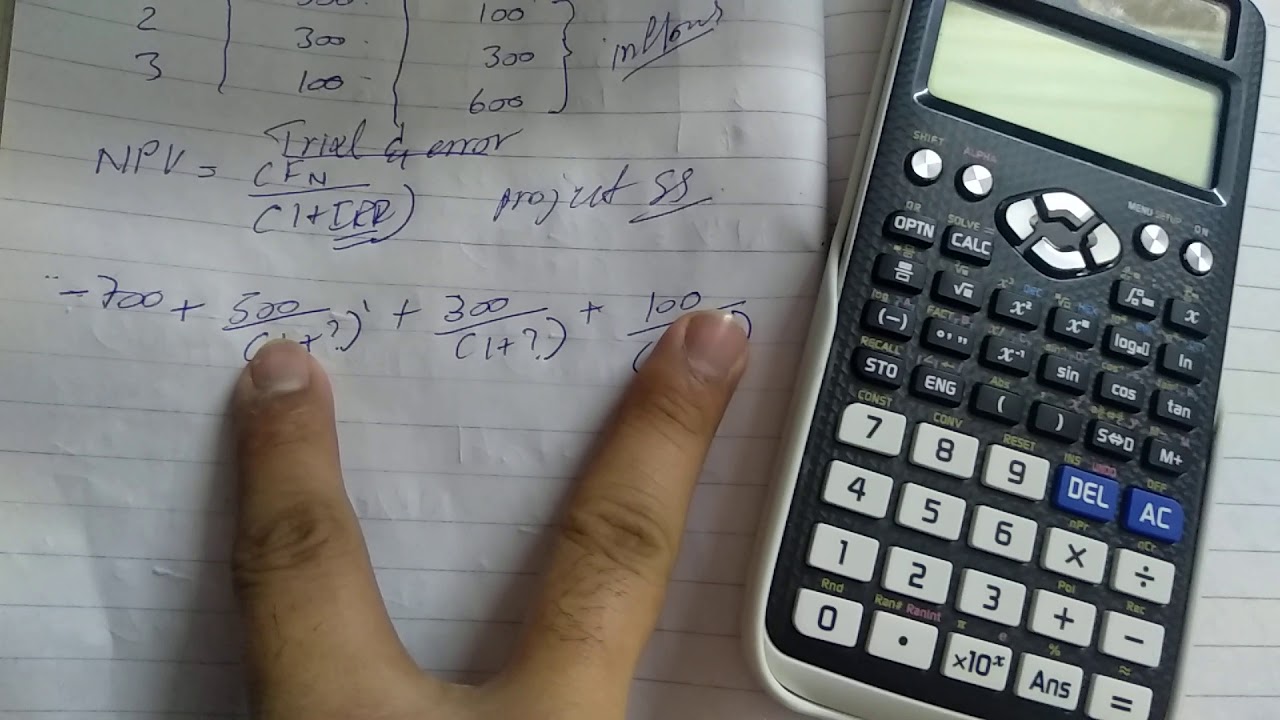 100
2 300 300 inflows
3 100 600
Trial & error
NPV = CFN project SS
(1+IRR)
-700 + 500 + 300 + 100
(1+?)¹ (1+?)
SHIFT ALPHA MENU SETUP ON
OPTN SOLVE =
CALC
√ x² x
(-) x⁻¹ log ln
RECALL
STO ENG sin cos tan
Abs
( ) S⇔D M+
CONST CONV RESET INS UNDO OFF
7 8 9 DEL AC
nPr nCr
4 5 6 × ÷
Pol Rec
1 2 3 + −
Rnd Ran# RanInt π e % ≈
0 . ×10ˣ Ans =